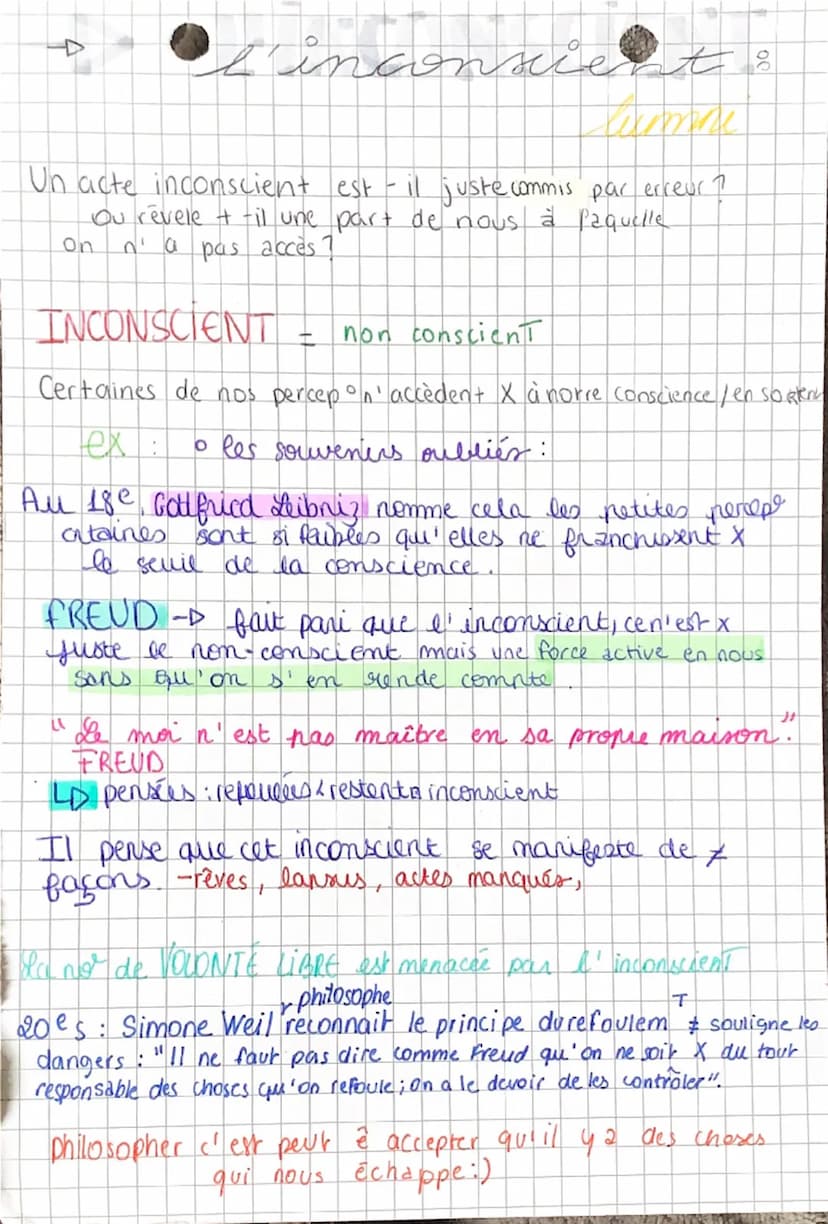 → L'inconscient :
lumni
Un acte inconscient est-il juste commis par erreur ?
ou révele t-il une part de nous à laquelle
on n'a pas accès ?
INCONSCIENT = non conscient
Certaines de nos percep° n'accèdent X à notre conscience / en sortent
ex : o les souvenirs oubliés :
Au 18e, Gottfried Leibniz nomme cela les petites percep°
crtaines sont si faibles qu'elles ne franchissent X
le seuil de la conscience.
FREUD → fait pari que l'inconscient, ce n'est X
juste le non-conscient mais une force active en nous
sans qu'on s'en rende compte.
"Le moi n'est pas maître en sa propre maison."
FREUD
↳ pensées : refoulées & restent a inconscient
Il pense que cet inconscient se manifeste de ≠
façons. -rêves, lapsus, actes manqués,
La no° de VOLONTÉ LIBRE est menacée par l'inconscient
philosophe
20e s : Simone Weil reconnait le principe du refoulem T ≠ souligne les
dangers : "Il ne faut pas dire comme Freud qu'on ne soit X du tout
responsable des choses qu'on refoule ; on a le devoir de les contrôler".
philosopher c'est peut ê accepter qu'il y a des choses
qui nous échappe :)